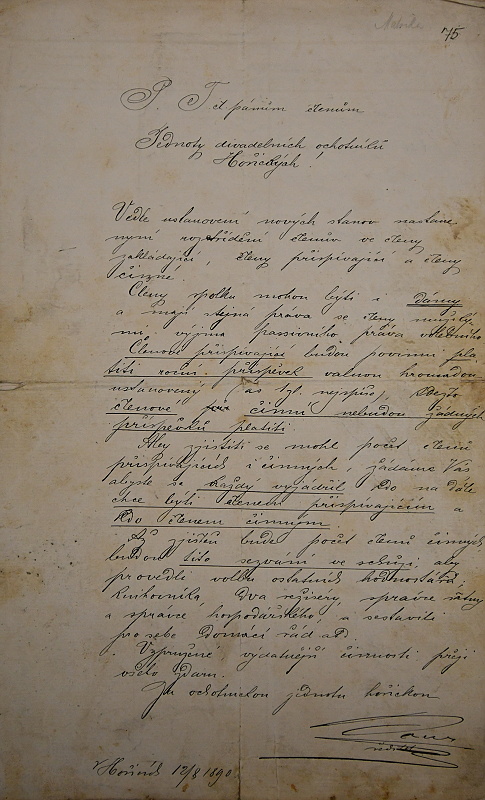 75
P. T. ct pánům členům
Jednoty divadelních ochotníků
Hořických!
Vedle ustanovení nových stanov nastane
nyní roztřídění členův ve členy
zakládající, členy přispívající a členy
činné.
Členy spolku mohou býti i dámy
a mají stejná práva se členy mužský-
mi vyjma passivního práva volebního
Členové přispívající budou povinni pla-
titi roční příspěvek valnou hromadou
ustanovený zl. nejspíše,
členové činní nebudou žádných
příspěvků platiti.
Aby zjistiti se mohl počet členů
přispívajících i činných, žádáme Vás
abyste se každý vyjádřil kdo na dále
chce býti členem přispívajícím a
kdo členem činným.
Až zjištěn bude počet členů činných
budou tito sezváni ve schůzi, aby
provedli volbu ostatních hodnostářů:
knihovníka, dva režiséry, správce šatny
a správce hospodářského, a sestaviti
pro sebe domácí řád atd.
výdatnější činnosti přeji
všeho zdaru.
Za ochotnickou jednotu hořickou
ředitel
V Hořicích 12/8 1890